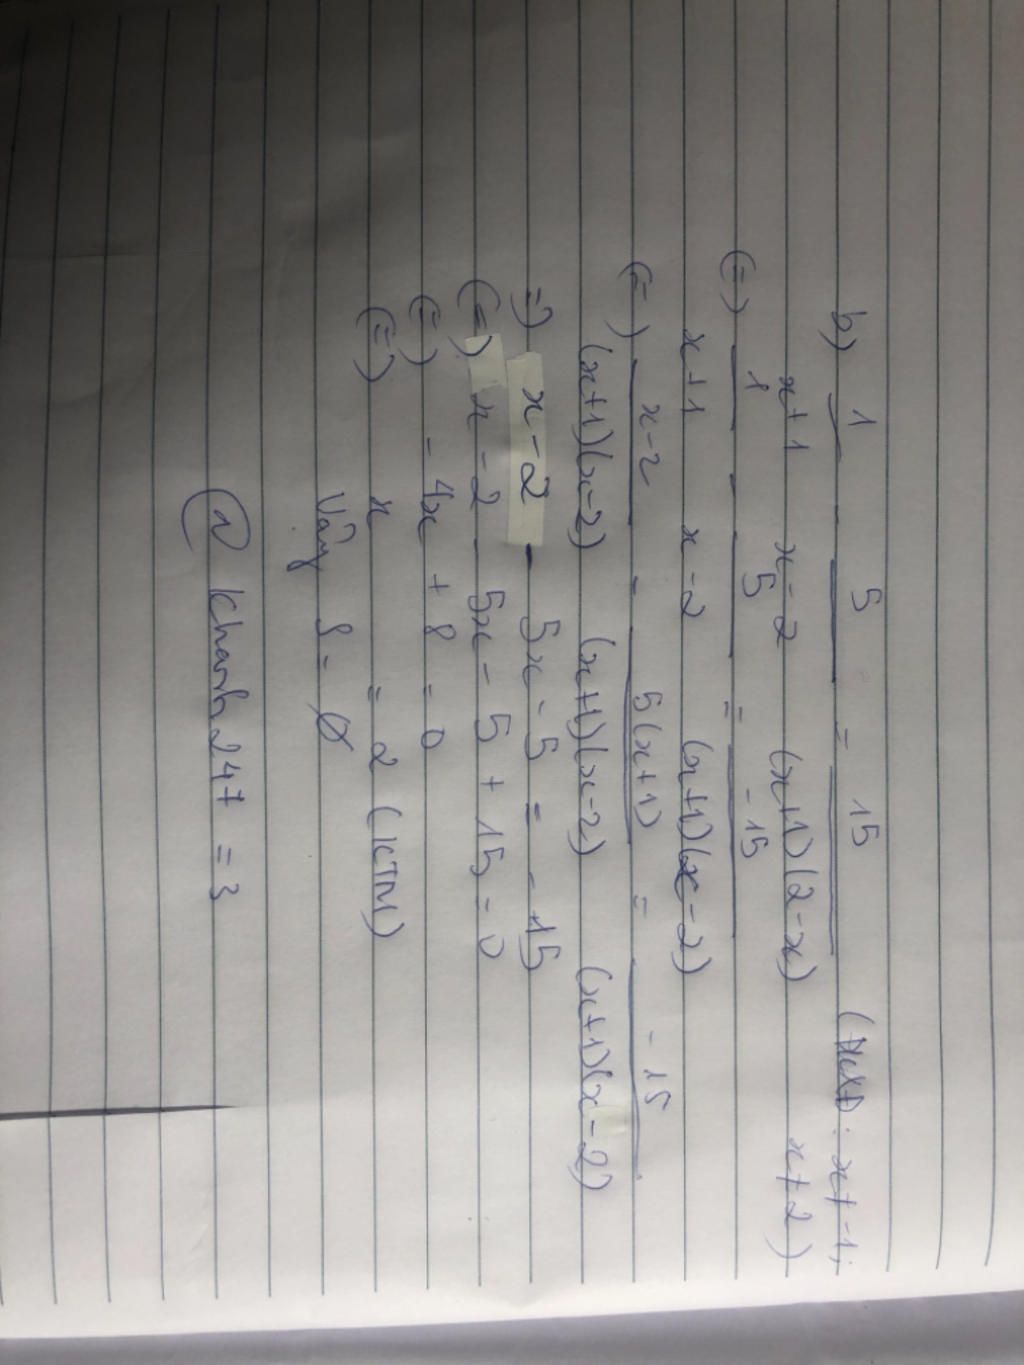 b) 1/(x+1) - 5/(x-2) = 15/((x+1)(2-x)) (ĐKXĐ: x ≠ -1; x ≠ 2)
(=) 1/(x+1) - 5/(x-2) = -15/((x+1)(x-2))
(=) x-2/((x+1)(x-2)) - 5(x+1)/((x+1)(x-2)) = -15/((x+1)(x-2))
=) x-2 - 5x-5 = -15
(=) x-2 - 5x-5+15=0
(=) -4x+8=0
(=) x = 2 (KTM)
Vậy S = Ø
Khanh247 = 3